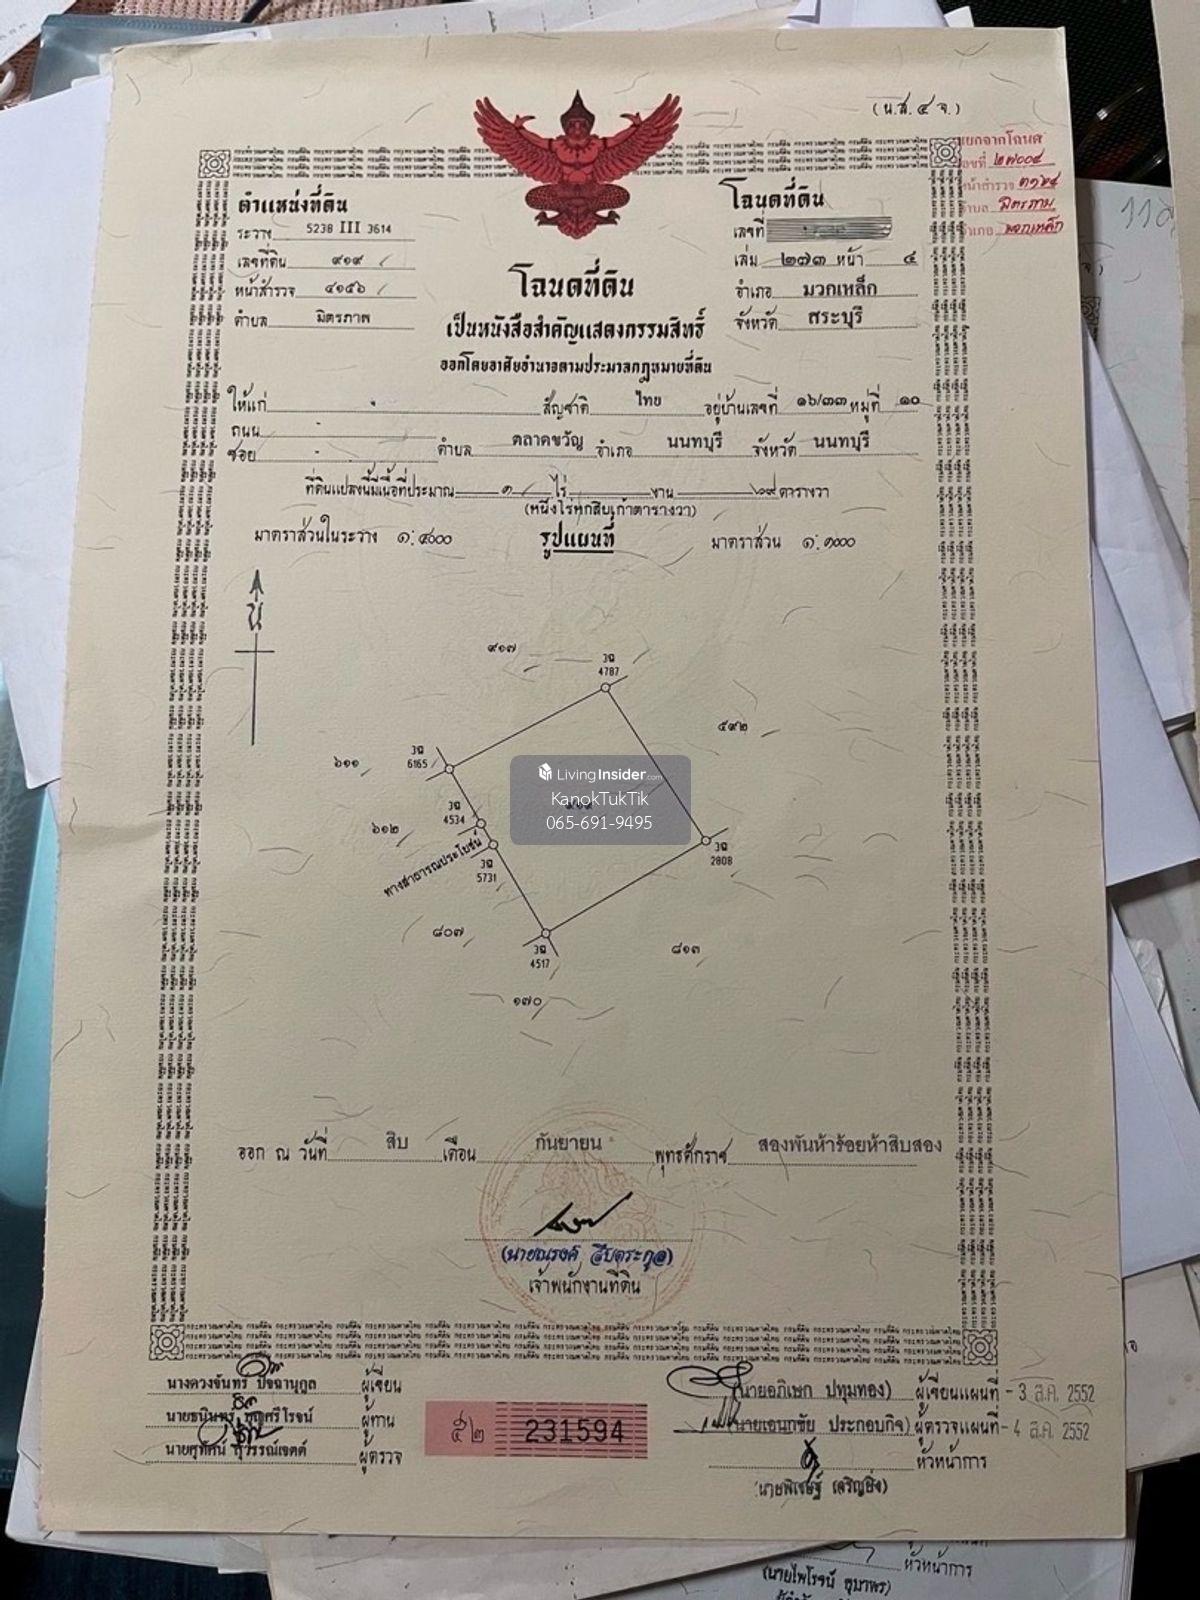 (น.ส.๔ จ.)
แยกจากโฉนด
เลขที่ ๒๗๐๐๔
หน้าสำรวจ ๓๑๒๔
ตำบล มิตรภาพ
อำเภอ มวกเหล็ก
ตำแหน่งที่ดิน
ระวาง 5238 III 3614
เลขที่ดิน ๙๑๙
หน้าสำรวจ ๔๑๕๖
ตำบล มิตรภาพ
โฉนดที่ดิน
เลขที่
เล่ม ๒๗๓ หน้า ๔
อำเภอ มวกเหล็ก
จังหวัด สระบุรี
โฉนดที่ดิน
เป็นหนังสือสำคัญแสดงกรรมสิทธิ์
ออกโดยอาศัยอำนาจตามประมวลกฎหมายที่ดิน
ให้แก่ สัญชาติ ไทย อยู่บ้านเลขที่ ๑๖/๓๓ หมู่ที่ ๑๐
ถนน
ซอย ตำบล ตลาดขวัญ อำเภอ นนทบุรี จังหวัด นนทบุรี
ที่ดินแปลงนี้มีเนื้อที่ประมาณ ๑ ไร่ งาน ๖๙ ตารางวา
(หนึ่งไร่หกสิบเก้าตารางวา)
มาตราส่วนในระวาง ๑:๔๐๐๐ รูปแผนที่ มาตราส่วน ๑:๑๐๐๐
น
๙๑๗
3ฉ
4787
๕๙๒
๖๑๑
3ฉ
6165
LivingInsider.com
KanokTukTik
065-691-9495
๙๑๙
3ฉ
4534
๖๑๒
ทางสาธารณประโยชน์
3ฉ
5731
3ฉ
2808
๘๐๗
3ฉ
4517
๘๑๓
๑๗๐
ออก ณ วันที่ สิบ เดือน กันยายน พุทธศักราช สองพันห้าร้อยห้าสิบสอง
(นายณรงค์ สืบตระกูล)
เจ้าพนักงานที่ดิน
นางดวงจันทร์ ปัจฉานุกูล ผู้เขียน
ผู้ทาน
นายสุทัศน์ สุวรรณเจตต์ ผู้ตรวจ
๕๒ 231594
(นายอภิเษก ปทุมทอง) ผู้เขียนแผนที่ - 3 ส.ค. 2552
นายเอนกชัย ประกอบกิจ) ผู้ตรวจแผนที่ - 4 ส.ค. 2552
หัวหน้าการ
นายพิเชษฐ์ เจริญยิ่ง)
หัวหน้าการ